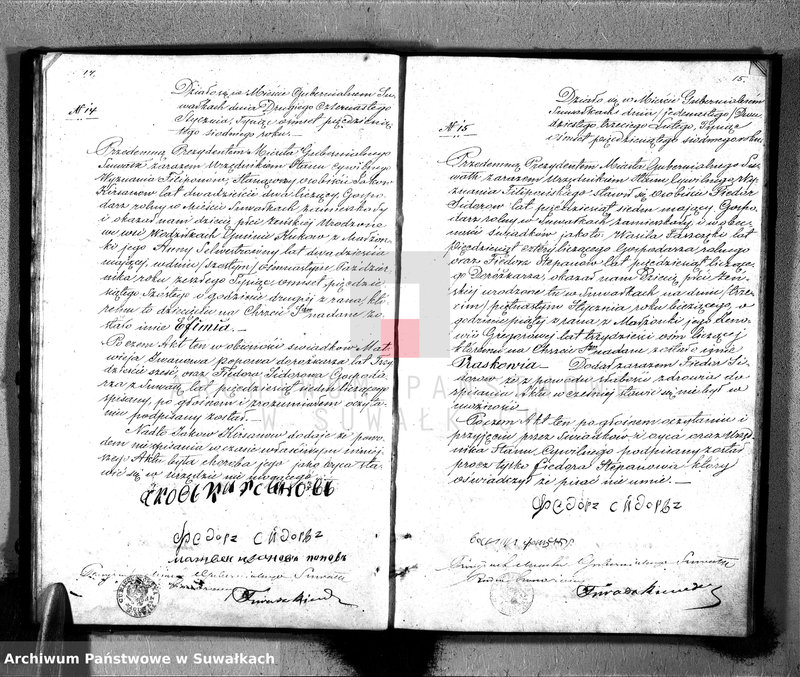 14.
№ 14
Działo się w Mieście Gubernialnem Su-
wałkach dnia Drugiego Czternastego
Stycznia, Tysiąc ośmset pięćdziesią-
tego siódmego roku.
Przedemną Prezydentem Miasta Gubernialnego
Suwałk zarazem Urzędnikiem Stanu Cywilnego
Wyznania Filiponów, Stanąwszy osobiście Jakow
Kirsanow lat dwadzieścia dwa liczący Gospo-
darz rolny w Mieście Suwałkach zamieszkały
i okazał nam dziecię płci żeńskiej Urodzone
we wsi Wodziłkach Gminie Kuków z Małżon-
ki jego Anny Selwestrowny lat dwadzieścia
mającej, w dniu szóstym/ośmnastym Paździer-
nika roku zeszłego Tysiąc ośmset pięćdzie-
siątego Szóstego o godzinie drugiej z rana, któ-
remu to dziecięciu na Chrzcie Stym nadane zo-
stało imie Efimia.—
Poczem Akt ten w obecności świadków Mat-
wieja Iwanowa popowa dorożkarza lat trzy-
dzieści sześć, oraz Fiedora Sidorowa Gospoda-
rza z Suwałk lat pięćdziesiąt siedm liczącego
spisany, po głośnem i zrozumiałem odczyta-
niu podpisany został.
Nadto Jakow Kirsanow dodaje że powo-
dem niespisania w czasie właściwym niniej-
szej Aktu była choroba jego jako ojca sta-
wić się w urzędzie nie mogącego.—
Яковъ Кирсановъ
Федоръ Сидоръвъ
матвеи ивановъ поповъ
Prezydent Miasta Gubernialnego Suwałk
15.
№ 15
Działo się w Mieście Gubernialném
Suwałkach dnia jedenastego/Dwu-
dziestego trzeciego Lutego, Tysiąc
ośmset pięćdziesiątego siódmego roku.
Przedemną Prezydentem Miasta Gubernialnego Su-
wałk, zarazem Urzędnikiem Stanu Cywilnego Wy-
znania Filipońskiego stawił się osobiście Fiedor
Sidorow lat pięćdziesiąt siedm mający Gospo-
darz rolny w Suwałkach zamieszkały i w obec-
ności świadków jakoto: Wasila
pięćdziesiąt cztery liczącego Gospodarza rolnego
oraz Fiedora Stepanow lat pięćdziesiąt liczące-
go Dorożkarza, okazał nam Dziecię płci żeń-
skiej urodzone tu w Suwałkach w dniu trze-
cim/piętnastym Stycznia roku bieżącego, o
godzinie piątej z rana z Małżonki jego
Gregorówny lat trzydzieści ośm liczącej
któremu na Chrzcie Stym nadane zostało imie
Praskowia.— Dodał zarazem Fiedor Si-
dorow że z powodu słabości zdrowia do
spisania Aktu wcześniej stawić się nie był w
możności.—
Poczem Akt ten po głośnem odczytaniu i
przyjęciu przez Świadków i ojca oraz Urzęd-
nika Stanu Cywilnego podpisany został
prócz tylko Fiedora Stepanowa który
oświadczył że pisać nie umie.—
Федоръ Сидоръвъ
Prezydent Miasta Gubernialnego Suwałk
ARCHIWUM PAŃSTWOWE
W SUWAŁKACH
Archiwum Państwowe w Suwałkach